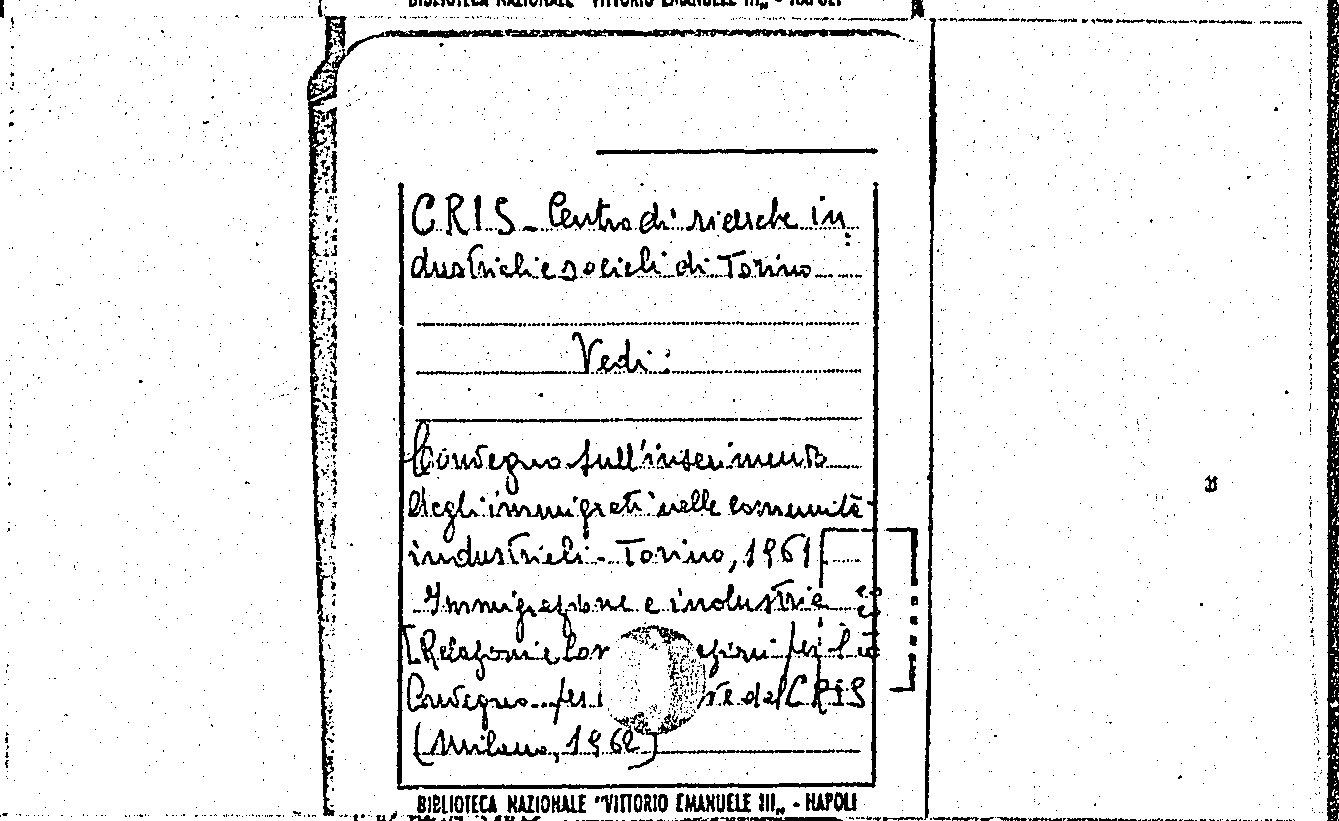 BIBLIOTECA NAZIONALE "VITTORIO EMANUELE III„ - NAPOLI
C.R.I.S - Centro di ricerche in
dustriali e sociali di Torino
Vedi:
Convegno sull'inserimento
degli immigrati nelle comunità
industriali - Torino, 1961
Immigrazione e industria
[Relazioni e per il
Convegno del CRIS
(Milano, 1962)
BIBLIOTECA NAZIONALE "VITTORIO EMANUELE III„ - NAPOLI